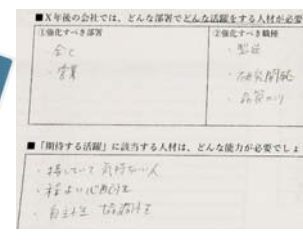 ■X年後の会社では、どんな部署でどんな活躍をする人材が必要
①強化すべき部署
②強化すべき職種
・全て
・営業
・製造
・研究開発
・品質
■「期待する活躍」に該当する人材は、どんな能力が必要でしょ
・接していて気持ちいい人
・程よい
・自主性 協調性